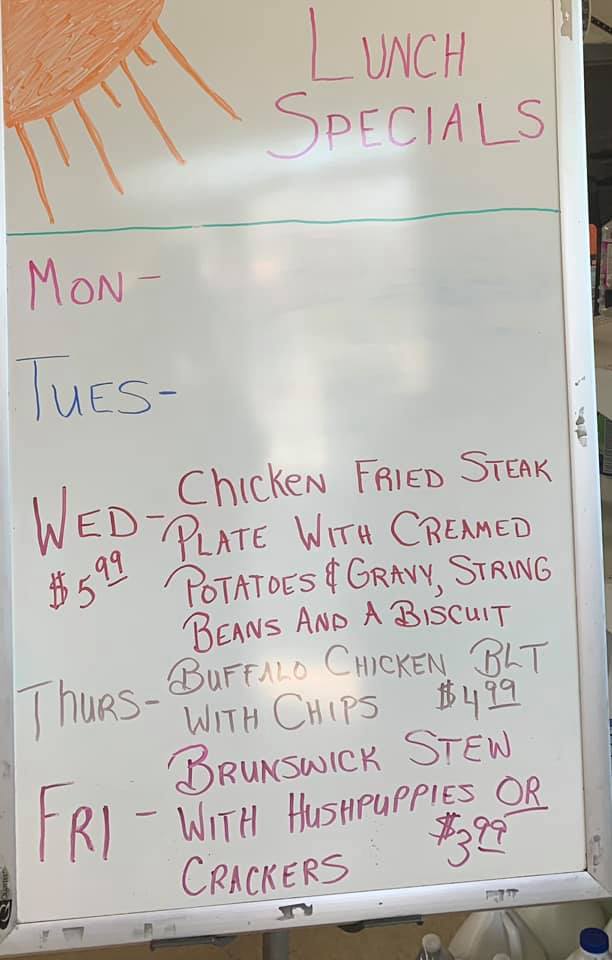 LUNCH
SPECIALS
MON-
TUES-
WED- Chicken FRIED STEAK
PLATE WITH CREAMED
$5.99 POTATOES & GRAVY, STRING
BEANS AND A BISCUIT
Thurs- BUFFALO CHICKEN BLT
WITH CHIPS $4.99
BRUNSWICK STEW
FRI - WITH HUSHPUPPIES OR
CRACKERS $3.99